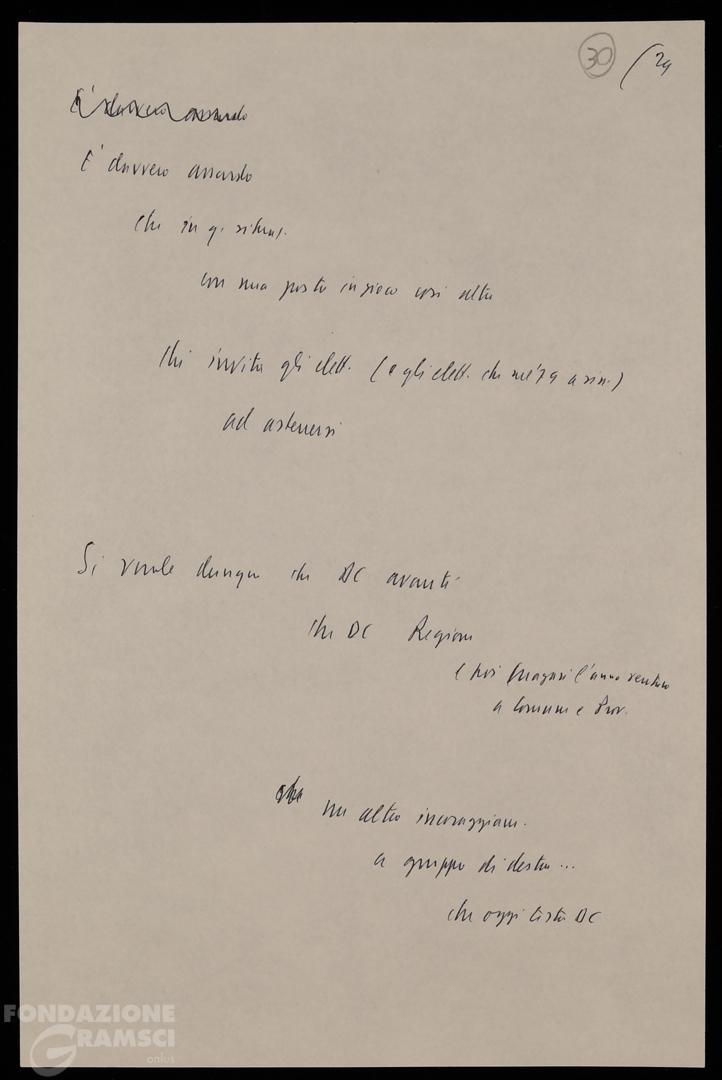 30 (29
E' davvero assurdo
E' davvero assurdo
che in q. situaz.
con una posta in gioco così alta
chi invita gli elett. (e gli elett. che a sin.)
ad astenersi
Si vuole dunque che DC avanti
che DC Regione
e poi (magari l'anno venturo
a Comuni e Prov.
che un altro incoraggiam.
a gruppo di destra ...
che oggi testa DC
FONDAZIONE
GRAMSCI
onlus